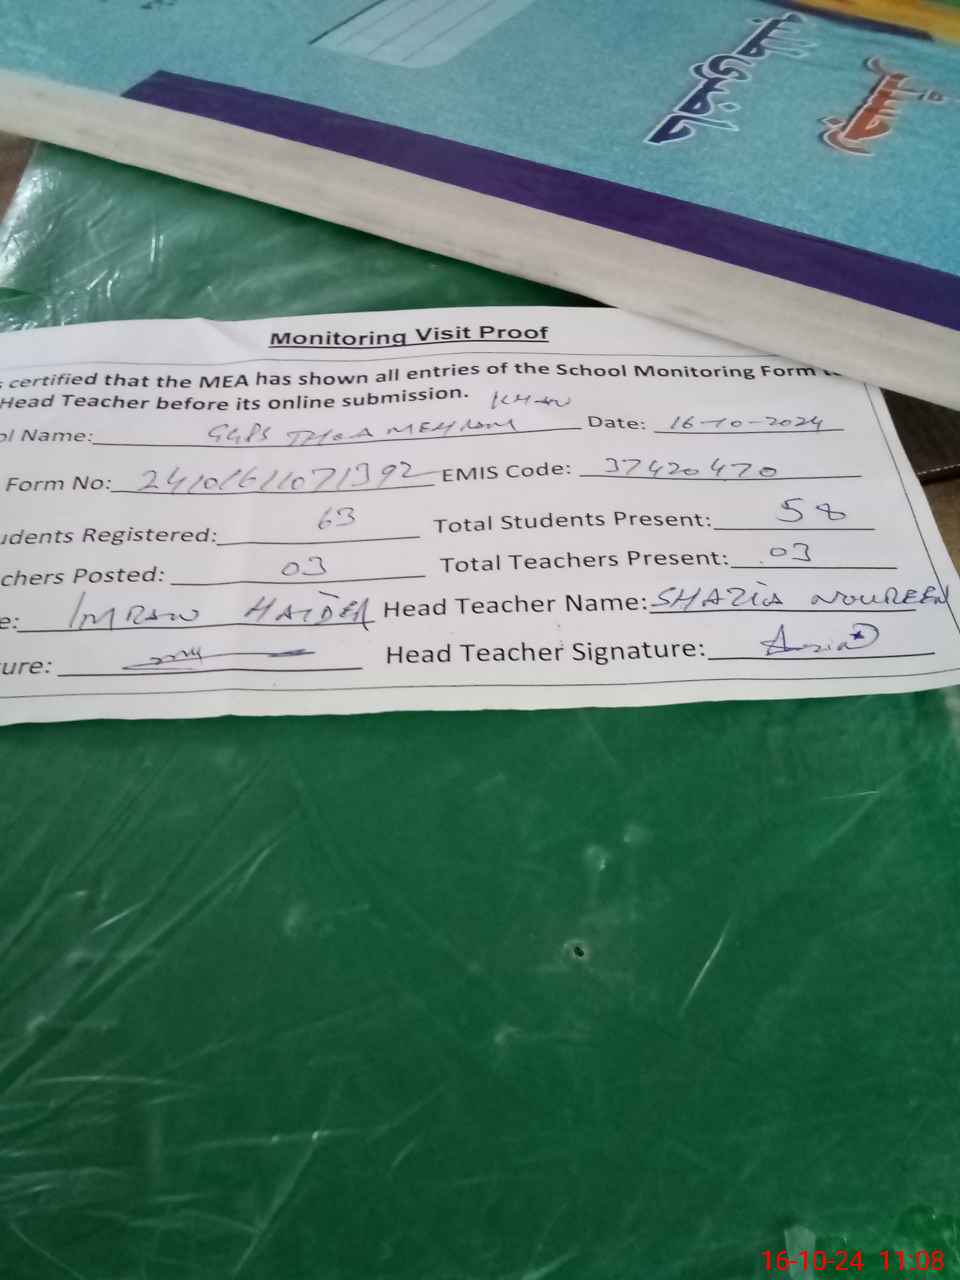 حاضری طلبہ
رجسٹر
Monitoring Visit Proof
certified that the MEA has shown all entries of the School Monitoring Form
Head Teacher before its online submission.
KHAN
ol Name: GGPS THOA MEHRAM Date: 16-10-2024
Form No: 24101611071392 EMIS Code: 37420470
udents Registered: 63 Total Students Present: 58
chers Posted: 03 Total Teachers Present: 03
e: IMRAN HAIDER Head Teacher Name: SHAZIA NOUREEN
ure: Head Teacher Signature:
16-10-24 11:08